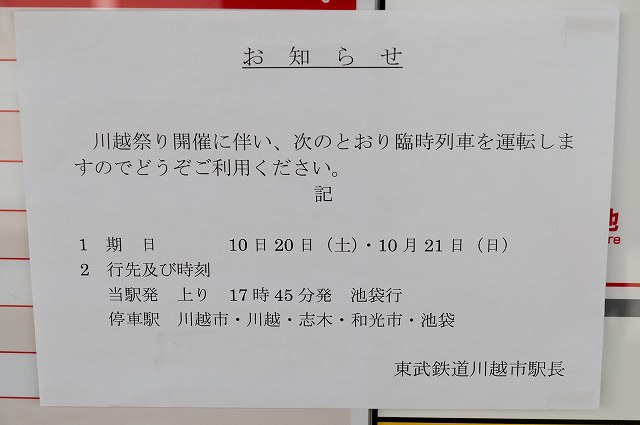 お知らせ
川越祭り開催に伴い、次のとおり臨時列車を運転しま
すのでどうぞご利用ください。
記
1 期 日 10日20日（土）・10月21日（日）
2 行先及び時刻
当駅発 上り 17時45分発 池袋行
停車駅 川越市・川越・志木・和光市・池袋
東武鉄道川越市駅長
地
re